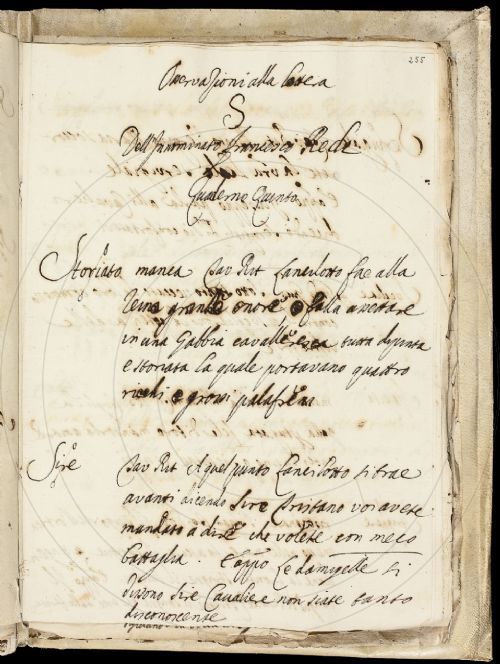 255
Osservazioni alla lettera
S
Dell'Innominato Francesco Redi
Quaderno Quinto
Storiato manca Tav Rit Lancilotto fae alla
Reina grande onore e falla assettare
in una Gabbia cavalleresca tutta dipinta
e storiata la quale portavano quattro
ricchi e grossi palafreni
Sire Tav Rit A quel punto Lancilotto si trae
avanti dicendo Sire Tristano voi avete
mandato a dire che volete con meco
battaglia. E appo Le damigelle si
dicono Sire Cavaliere non siate tanto
disconoscente